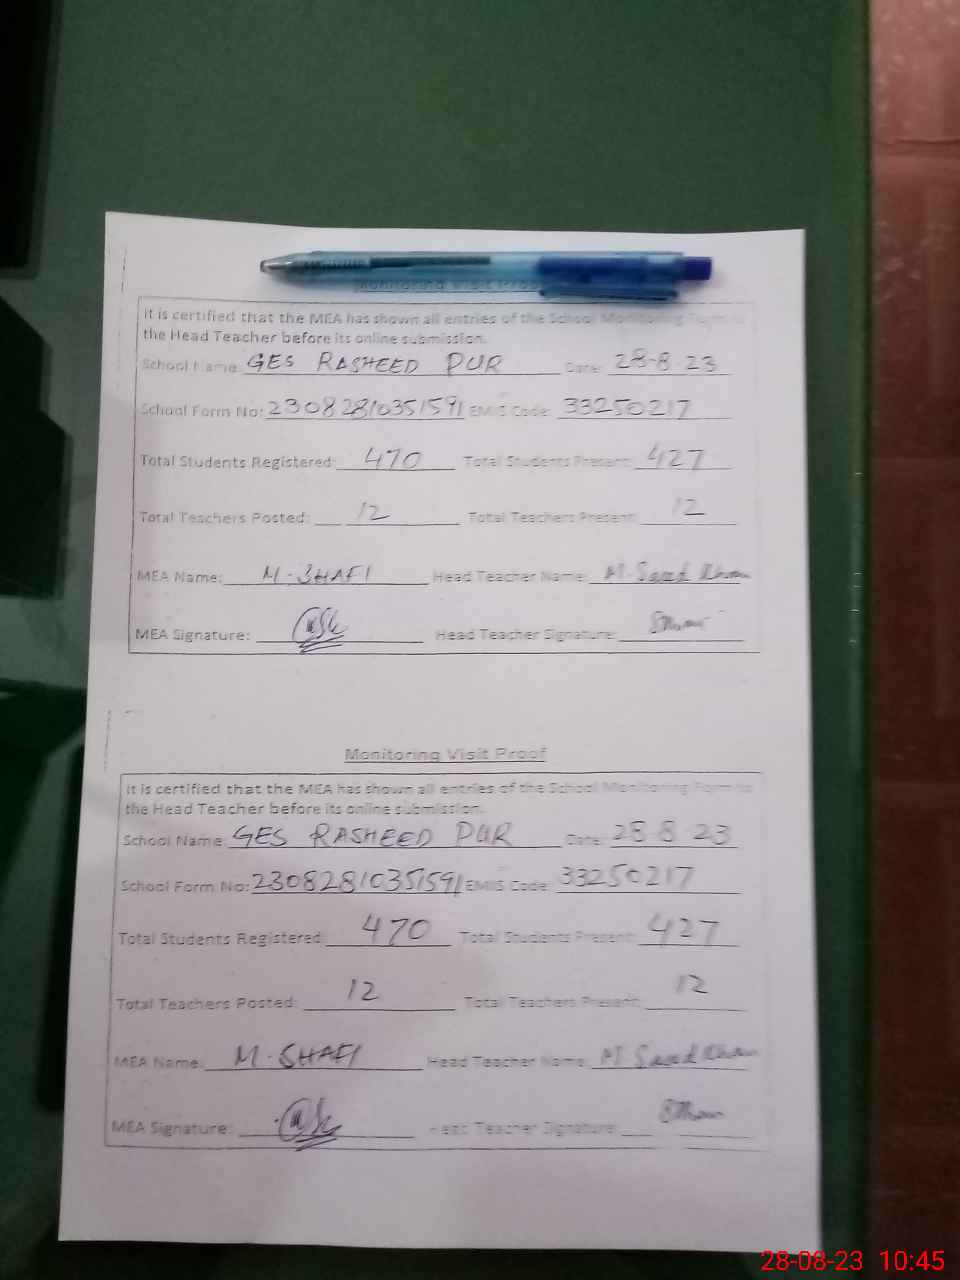 Monitoring Visit Proof
It is certified that the MEA has shown all entries of the School Monitoring Form to
the Head Teacher before its online submission.
School Name: GES RASHEED PUR Date: 28-8-23
School Form No: 23082810351591 EMIS Code: 33250217
Total Students Registered: 470 Total Students Present: 427
Total Teachers Posted: 12 Total Teachers Present: 12
MEA Name: M-SHAFI Head Teacher Name: M. Saeed Khan
MEA Signature: Head Teacher Signature:
Monitoring Visit Proof
It is certified that the MEA has shown all entries of the School Monitoring Form to
the Head Teacher before its online submission.
School Name: GES RASHEED PUR Date: 28-8-23
School Form No: 23082810351591 EMIS Code: 33250217
Total Students Registered: 470 Total Students Present: 427
Total Teachers Posted: 12 Total Teachers Present: 12
MEA Name: M-SHAFI Head Teacher Name: M. Saeed Khan
MEA Signature: Head Teacher Signature:
28-08-23 10:45